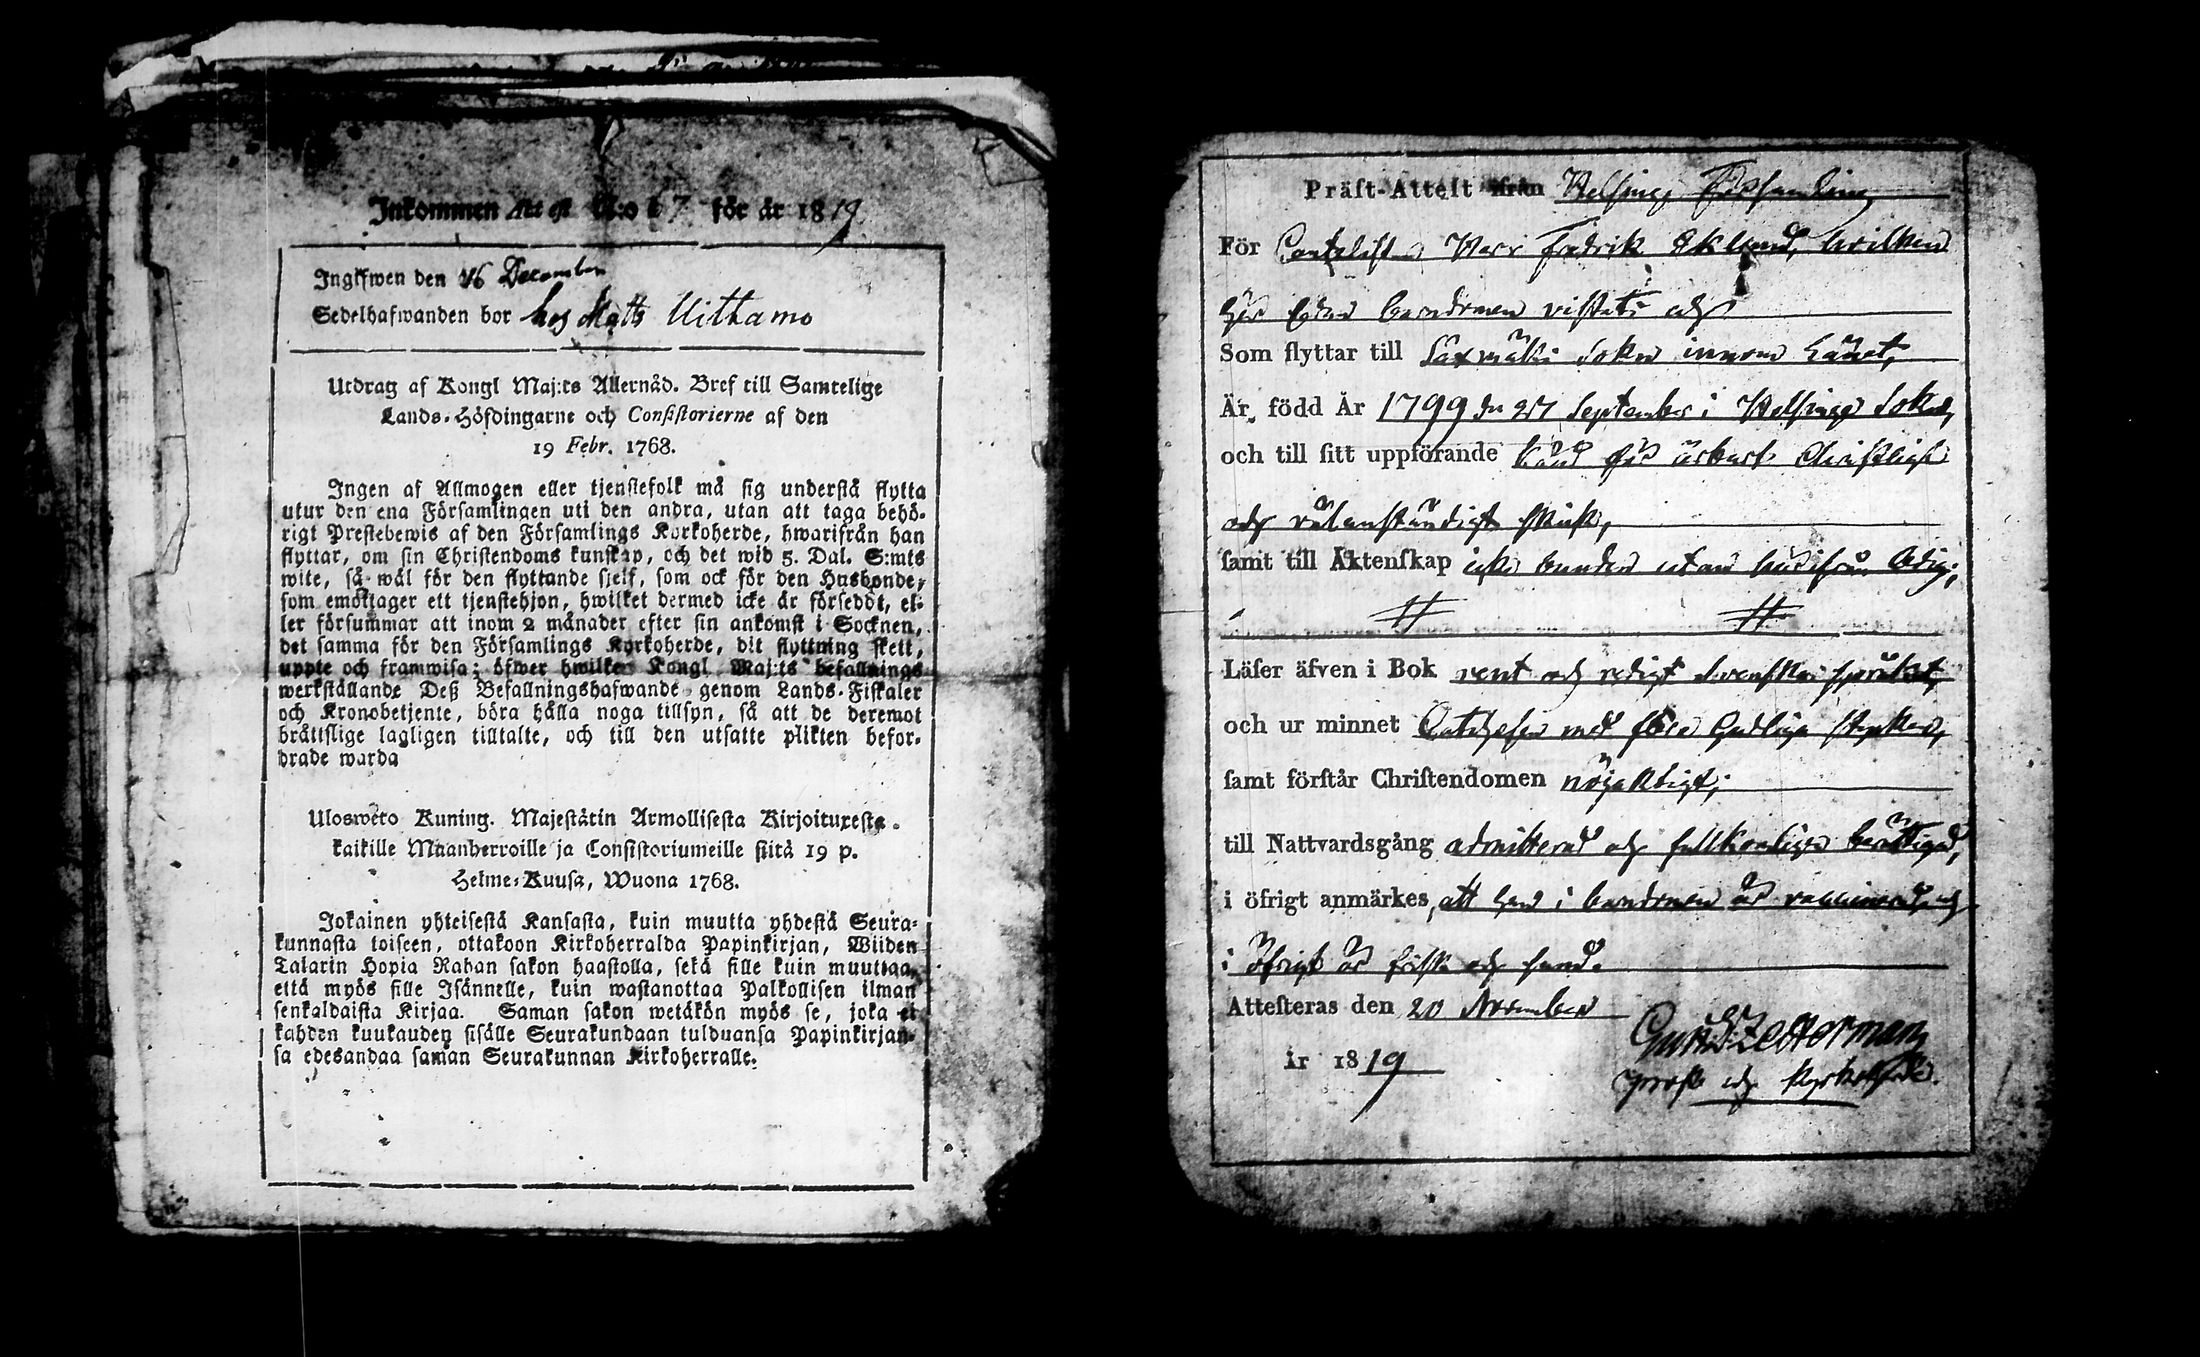 Inkommen Attest N:o 67 för år 1819
Ingifwen den 16 December
Sedelhafwanden bor hos Matts Uithamo
Utdrag af Kongl Maj:ts Allernåd. Bref till Samtelige
Lands-Höfdingarne och Consistorierne af den
19 Febr. 1768.
Ingen af Allmogen eller tjenstefolk må sig understå flytta
utur den ena Församlingen uti den andra, utan att taga behö-
rigt Prestebewis af den Församlings Kyrkoherde, hwarifrån han
flyttar, om sin Christendoms kunskap, och det wid 5. Dal. S:mts
wite, så wäl för den flyttande sjelf, som ock för den Husbonde,
som emottager ett tjenstehjon, hwilket dermed icke är förseddt, el-
ler försummar att inom 2 månader efter sin ankomst i Socknen,
det samma för den Församlings Kyrkoherde, dit flyttning skett,
uppte och framwisa; öfwer hwilken Kongl Maj:ts befallnings
werkställande Deß Befallningshafwande genom Lands-Fiskaler
och Kronobetjente, böra hålla noga tillsyn, så att de deremot
bråttslige lagligen tilltalte, och till den utsatte plikten befor-
drade warda
Uloswéto Kuning. Majestätin Armollisesta Kirjoituxesta
kaikille Maanherroille ja Consistoriumeille siitä 19 p.
Helme-Kuusa, Wuona 1768.
Jokainen yhteisestä Kansasta, kuin muutta yhdestä Seura-
kunnasta toiseen, ottakoon Kirkoherralda Papinkirjan, Wiiden
Talarin Hopia Rahan sakon haastolla, sekä sille kuin muuttaa,
että myös sille Isännelle, kuin wastanottaa Palkollisen ilman
senkaldaista Kirjaa. Saman sakon wetäkön myös se, joka ei
kahden kuukauden sisälle Seurakundaan tulduansa Papinkirjan-
sa edesandaa saman Seurakunnan Kirkoherralle.
Präst-Attest ifrån Helsinge Församling
För Cantzlisten Herr Fredrik Eklund, hvilken
här sedan barndomen vistats och
Som flyttar till Saxmäki Sokn innom Länet,
Är, född År 1799 den 27 September i Helsinge Sokn,
och till sitt uppförande känd för ärbart Christligt
och välanständigt skick,
samt till Äktenskap icke bunden utan härifrån ledig;
Läser äfven i Bok rent och redigt Svenska språket,
och ur minnet Catechesen med flere Gudliga stycken,
samt förstår Christendomen nöjaktigt;
till Nattvardsgång admitterad och fullkomligen berättigad,
i öfrigt anmärkes, att han i barndomen är vaccinerad, och
i öfrigt är frisk och sund.
Attesteras den 20 November
år 1819
Gust: Zedterman,
prost och Kyrkoherde.